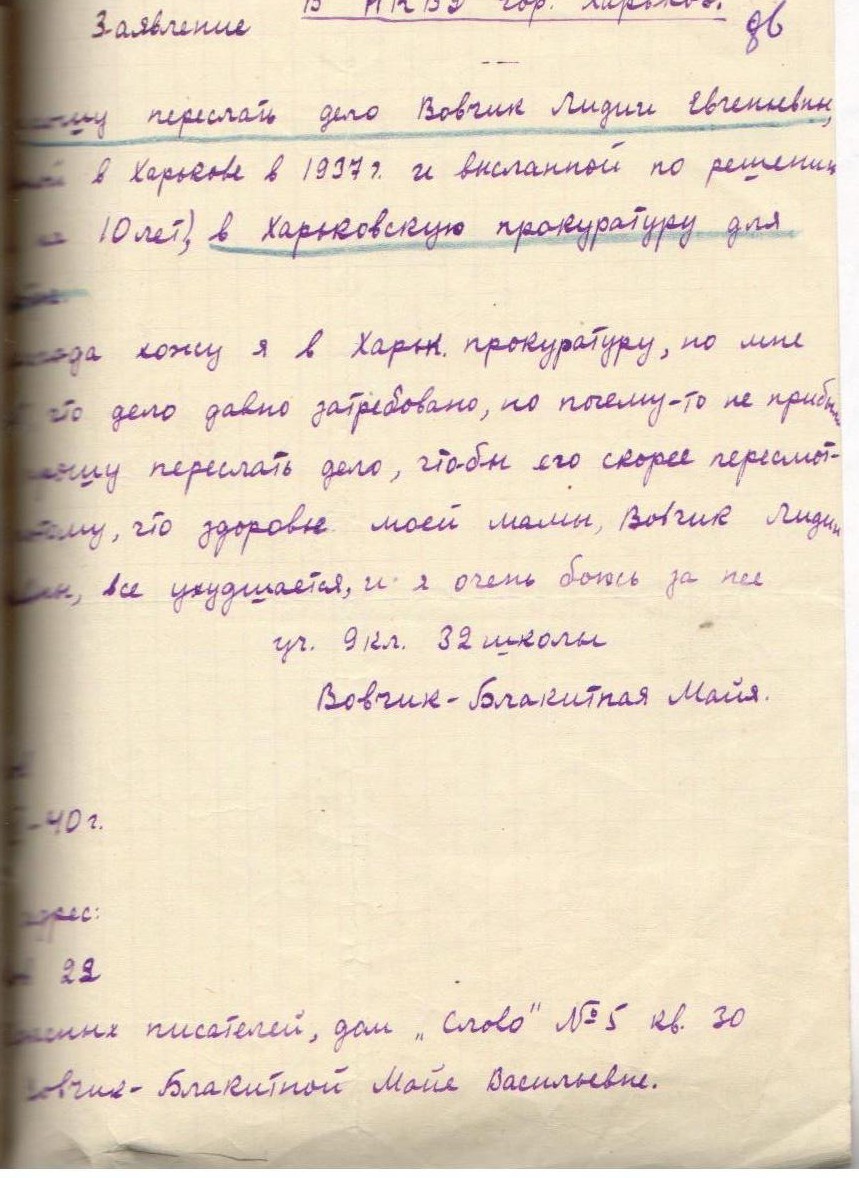 В НКВД гор. Харьков.
Заявление
прошу переслать дело Вовчик Лидии Евгеньевны,
ной в Харькове в 1937 г. и высланной по решению
на 10 лет), в Харьковскую прокуратуру для
хожу я в Харьк. прокуратуру, но мне
что дело давно затребовано, но почему-то не прибыло
прошу переслать дело, что-бы его скорее пересмот-
потому, что здоровье моей мамы, Вовчик Лидии
вны, все ухудшается, и я очень боюсь за нее
уч. 9 кл. 32 школы
Вовчик-Блакитная Майя.
-40 г.
адрес:
22
писателей, дом „Слово" № 5 кв. 30
Вовчик-Блакитной Майе Васильевне.